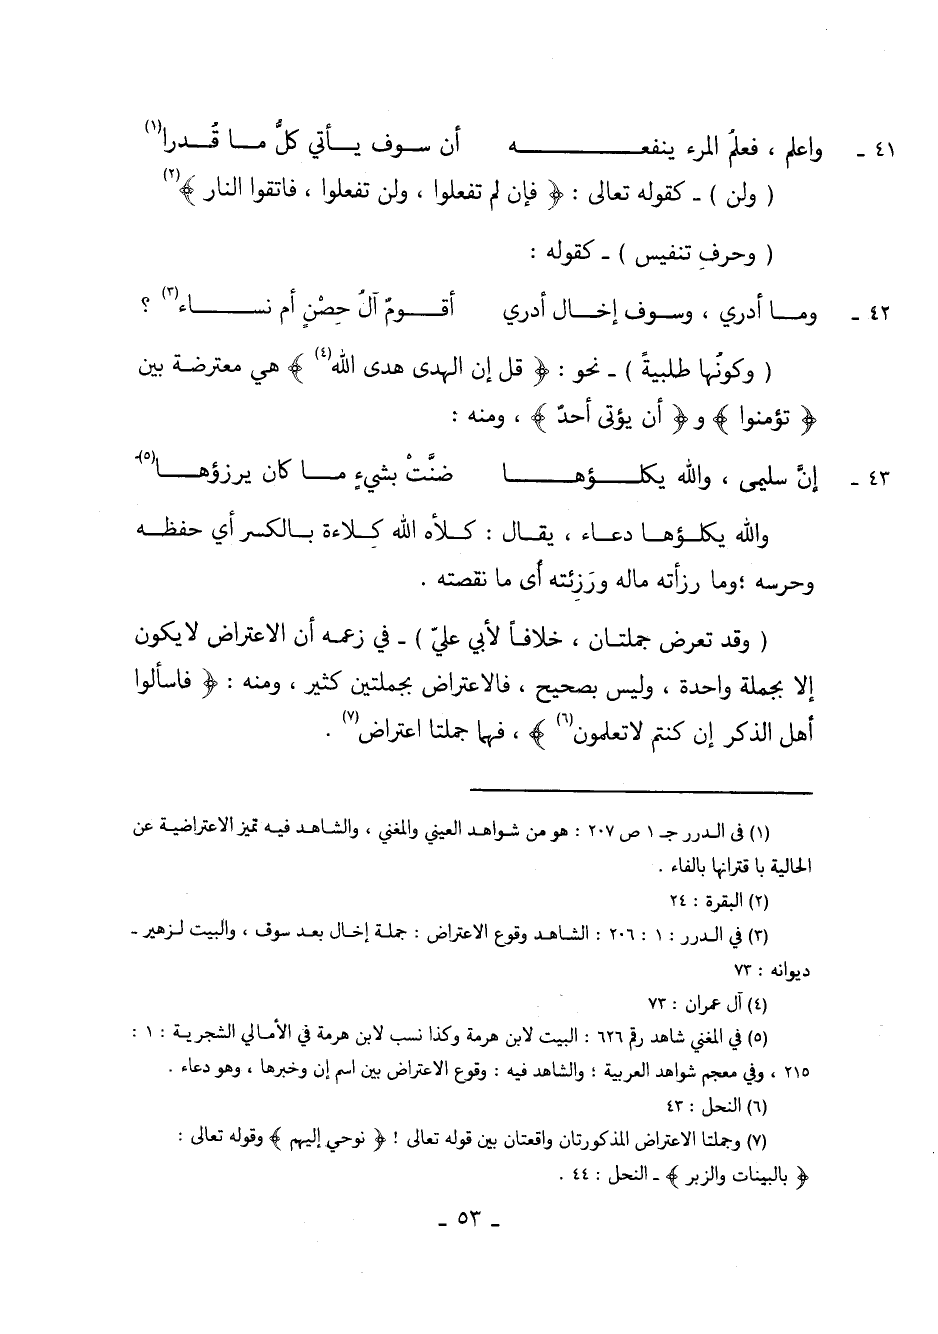 ٤١ ـ واعلم ، فعلمُ المرء ينفعــــه أن سـوف يــأتي كلُّ مـا قُـدرا(١)
( ولن ) ـ كقوله تعالى : ﴿ فإن لم تفعلوا ، ولن تفعلوا ، فاتقوا النار ﴾(٢)
( وحرفِ تنفيس ) ـ كقوله :
٤٢ ـ ومـا أدري ، وسـوف إخـال أدري أقـومٌ آلُ حِصْنٍ أم نسـاء(٣) ؟
( وكونُها طلبيةً ) ـ نحو : ﴿ قل إن الهدى هدى الله(٤) ﴾ هي معترضة بين
﴿ تؤمنوا ﴾ و ﴿ أن يؤتى أحدٌ ﴾ ، ومنه :
٤٣ ـ إنَّ سليمى ، والله يكلـؤهـا ضنَّتْ بشيءٍ مـا كان يرزؤهـا(٥)
والله يكلـؤهـا دعـاء ، يقـال : كـلأه الله كـلاءة بـالكسر أي حفظـه
وحرسه ؛وما رزأته ماله ورَزِئته أى ما نقصته .
( وقد تعرض جملتـان ، خلافـاً لأبي عليّ ) ـ في زعمـه أن الاعتراض لايكون
إلا بجملة واحدة ، وليس بصحيح ، فالاعتراض بجملتين كثير ، ومنه : ﴿ فاسألوا
أهل الذكر إن كنتم لاتعلمون(٦) ﴾ ، فهما جملتا اعتراض(٧) .
(١) فى الـدرر جـ ١ ص ٢٠٧ : هو من شواهد العيني والمغني ، والشاهد فيـه تميز الاعتراضيـة عن
الحالية با قترانها بالفاء .
(٢) البقرة : ٢٤
(٣) في الـدرر : ١ : ٢٠٦ : الشاهـد وقوع الاعتراض : جملـة إخـال بعـد سوف ، والبيت لـزهير ـ
ديوانه : ٧٣
(٤) آل عمران : ٧٣
(٥) في المغني شاهد رقم ٦٢٦ : البيت لابن هرمة وكذا نسب لابن هرمة في الأمالي الشجريـة : ١ :
٢١٥ ، وفي معجم شواهد العربية ؛ والشاهد فيه : وقوع الاعتراض بين اسم إن وخبرها ، وهو دعاء .
(٦) النحل : ٤٣
(٧) وجملتا الاعتراض المذكورتان واقعتان بين قوله تعالى ! ﴿ نوحي إليهم ﴾ وقوله تعالى :
﴿ بالبينات والزبر ﴾ ـ النحل : ٤٤ .
ـ ٥٣ ـ